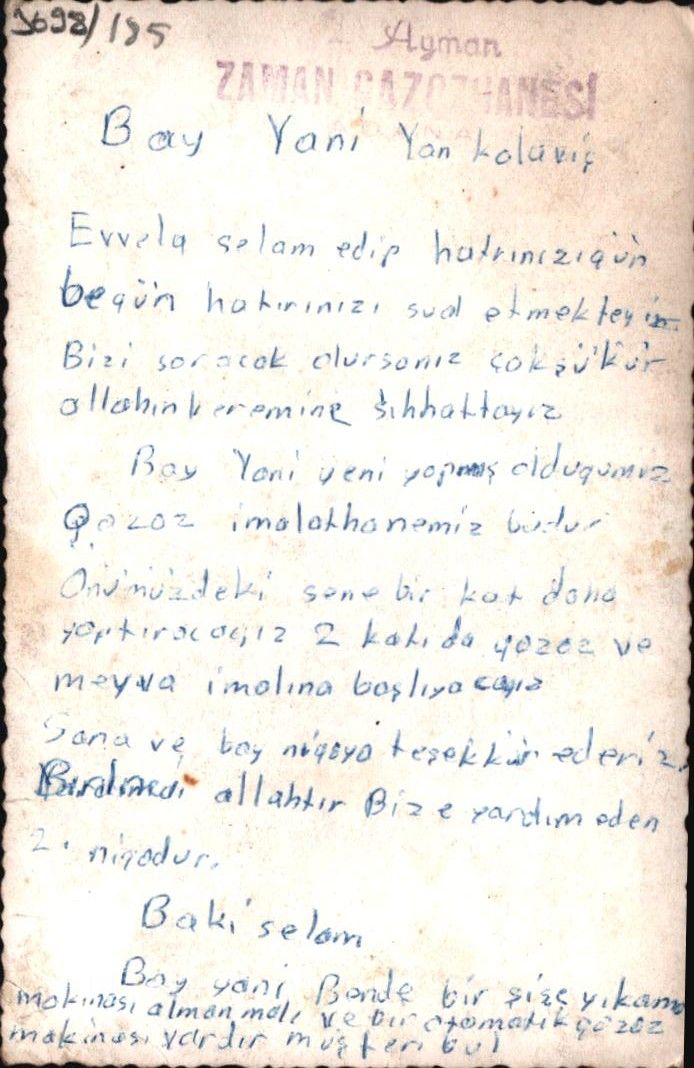 3698/185
Z. Ayman
ZAMAN GAZOZHANESİ
ADANA
Bay Yani Yan kolaviç
Evvela selam edip hatrınızıgün
begün hatırınızı sual etmekteyin
Bizi soracak olursanız çokşükür
allahın keremine sıhhattayız
Bay Yani yeni yapmış olduğumuz
Gazoz imalathanemiz budur
Önümüzdeki sene bir kat daha
yaptıracağız 2 katı da gazoz ve
meyva imalına başlıyacağız
Sana ve bay nigoya teşekkür ederiz.
Birdincisi allahtır Bize yardım eden
2. nigodur.
Baki selam
Bay yani Bende bir şişe yıkama
makinası alman malı ve bir otomatik gazoz
makinası vardır müşteri bul